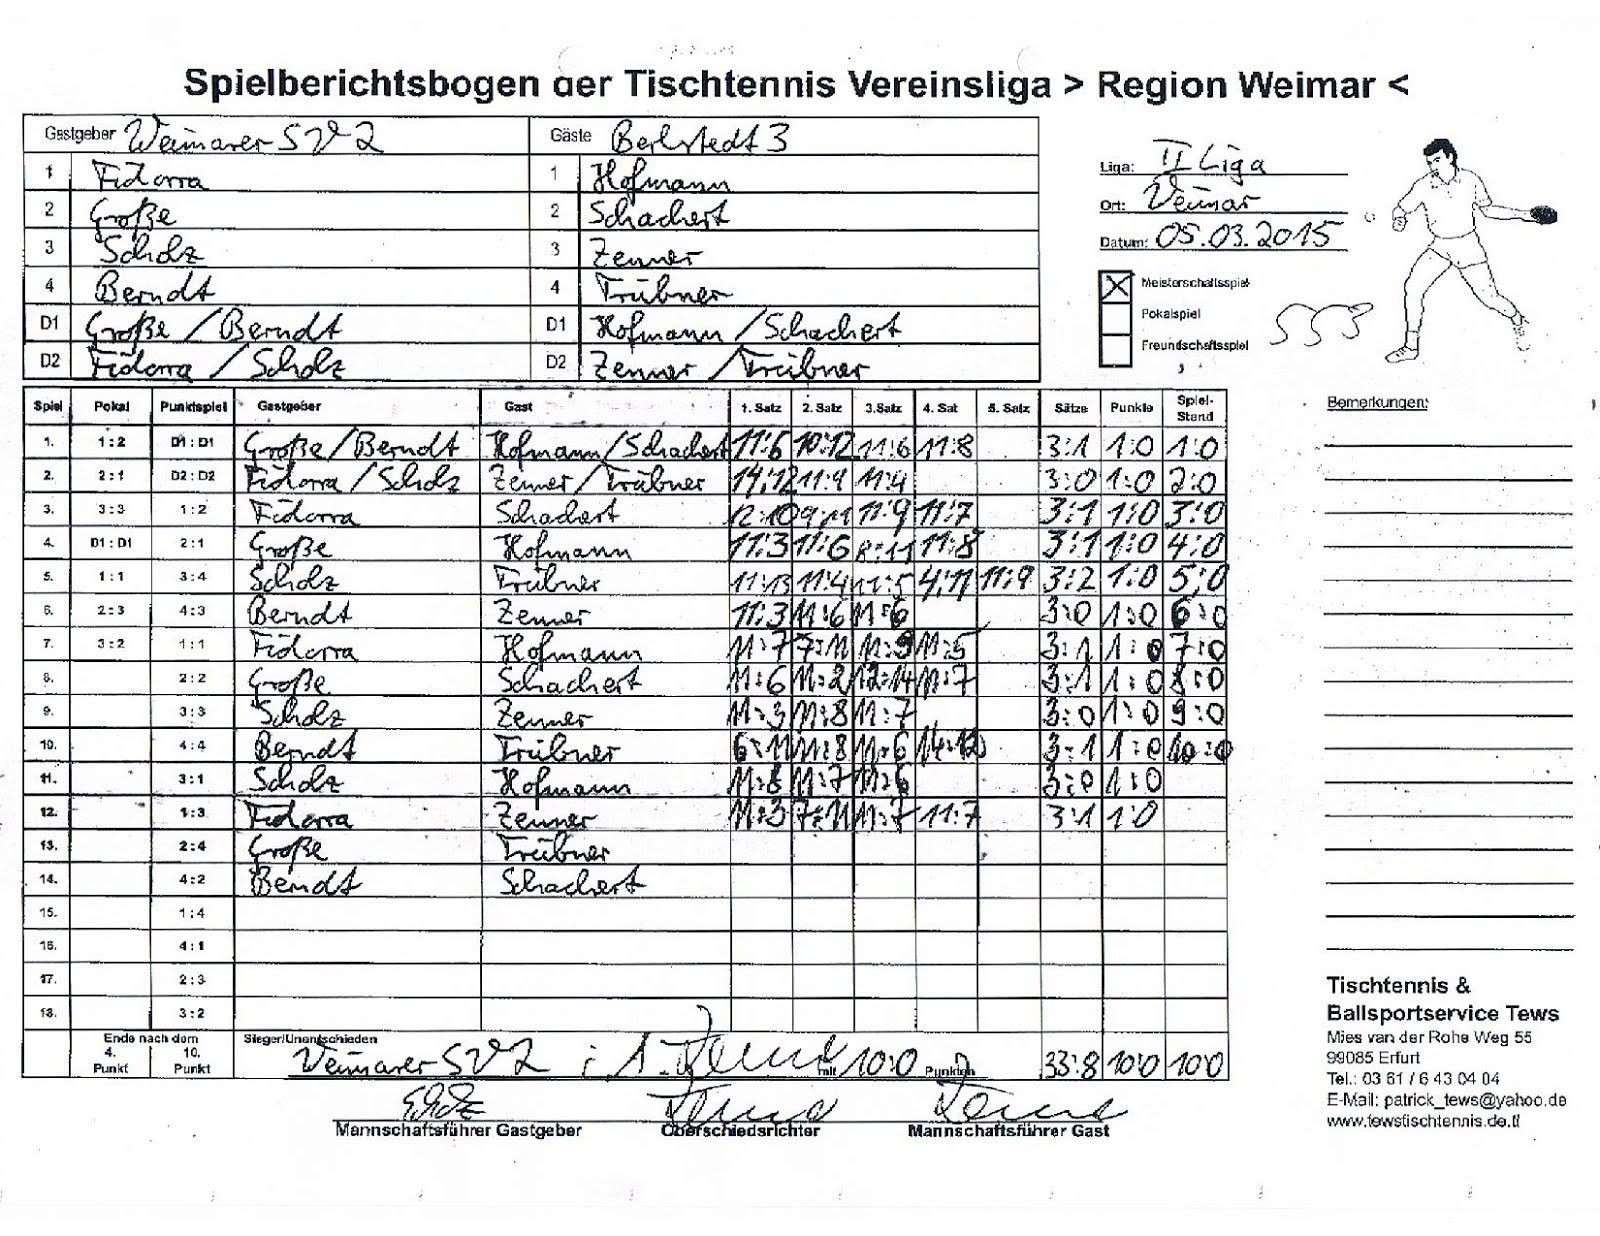 Spielberichtsbogen der Tischtennis Vereinsliga > Region Weimar <
Gastgeber Weimarer SV 2 Gäste Berlstedt 3
1 Fidorra 1 Hofmann
2 Große 2 Schachert
3 Scholz 3 Zenner
4 Berndt 4 Trübner
D1 Große / Berndt D1 Hofmann / Schachert
D2 Fidorra / Scholz D2 Zenner / Trübner
Liga: II Liga
Ort: Weimar
Datum: 05.03.2015
Meisterschaftsspiel
Pokalspiel
Freundschaftsspiel
Spiel Pokal Punktspiel Gastgeber Gast 1. Satz 2. Satz 3.Satz 4. Sat 5. Satz Sätze Punkte Spiel-Stand
1. 1:2 D1:D1 Große/Berndt Hofmann/Schachert 11:6 10:12 11:6 11:8 3:1 1:0 1:0
2. 2:1 D2:D2 Fidorra / Scholz Zenner/Trübner 14:12 11:9 11:4 3:0 1:0 2:0
3. 3:3 1:2 Fidorra Schachert 12:10 9:11 11:9 11:7 3:1 1:0 3:0
4. D1:D1 2:1 Große Hofmann 11:3 11:6 8:11 11:8 3:1 1:0 4:0
5. 1:1 3:4 Scholz Trübner 11:13 11:4 11:5 4:11 11:9 3:2 1:0 5:0
6. 2:3 4:3 Berndt Zenner 11:3 11:6 11:6 3:0 1:0 6:0
7. 3:2 1:1 Fidorra Hofmann 11:7 7:11 11:9 11:5 3:1 1:0 7:0
8. 2:2 Große Schachert 11:6 11:2 12:14 11:7 3:1 1:0 8:0
9. 3:3 Scholz Zenner 11:3 11:8 11:7 3:0 1:0 9:0
10. 4:4 Berndt Trübner 6:11 11:8 11:6 14:12 3:1 1:0 10:0
11. 3:1 Scholz Hofmann 11:8 11:7 11:6 3:0 1:0
12. 1:3 Fidorra Zenner 11:3 7:11 11:7 11:7 3:1 1:0
13. 2:4 Große Trübner
14. 4:2 Berndt Schachert
15. 1:4
16. 4:1
17. 2:3
18. 3:2
Ende nach dem
4. Punkt 10. Punkt
Sieger/Unentschieden
Weimarer SV 2 mit 10:0 Punkten 33:8 10:0 10:0
Mannschaftsführer Gastgeber Oberschiedsrichter Mannschaftsführer Gast
Bemerkungen:
Tischtennis &
Ballsportservice Tews
Mies van der Rohe Weg 55
99085 Erfurt
Tel.: 03 61 / 6 43 04 04
E-Mail: patrick_tews@yahoo.de
www.tewstischtennis.de.tl